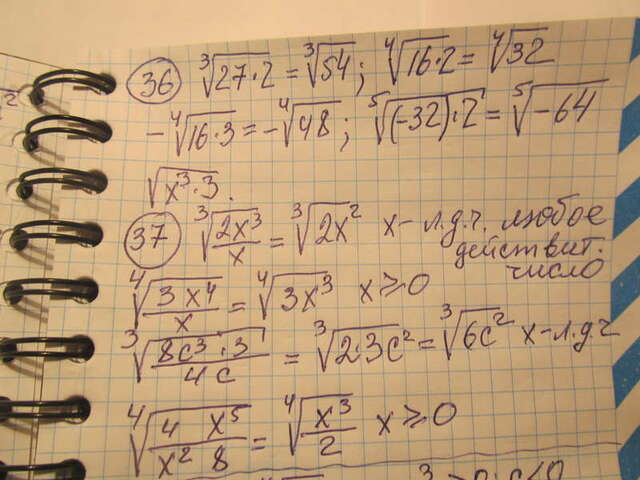 36 ∛(27·2) = ∛54; ∜(16·2) = ∜32
-∜(16·3) = -∜48; ⁵√((-32)·2) = ⁵√(-64)
√(x³·3).
37 ∛(2x³/x) = ∛(2x²) x - л.д.ч. любое
действит.
число
∜(3x⁴/x) = ∜(3x³) x ≥ 0
∛(8c³·3/4c) = ∛(2·3c²) = ∛(6c²) x - л.д.ч
∜(4 x⁵/x² 8) = ∜(x³/2) x ≥ 0